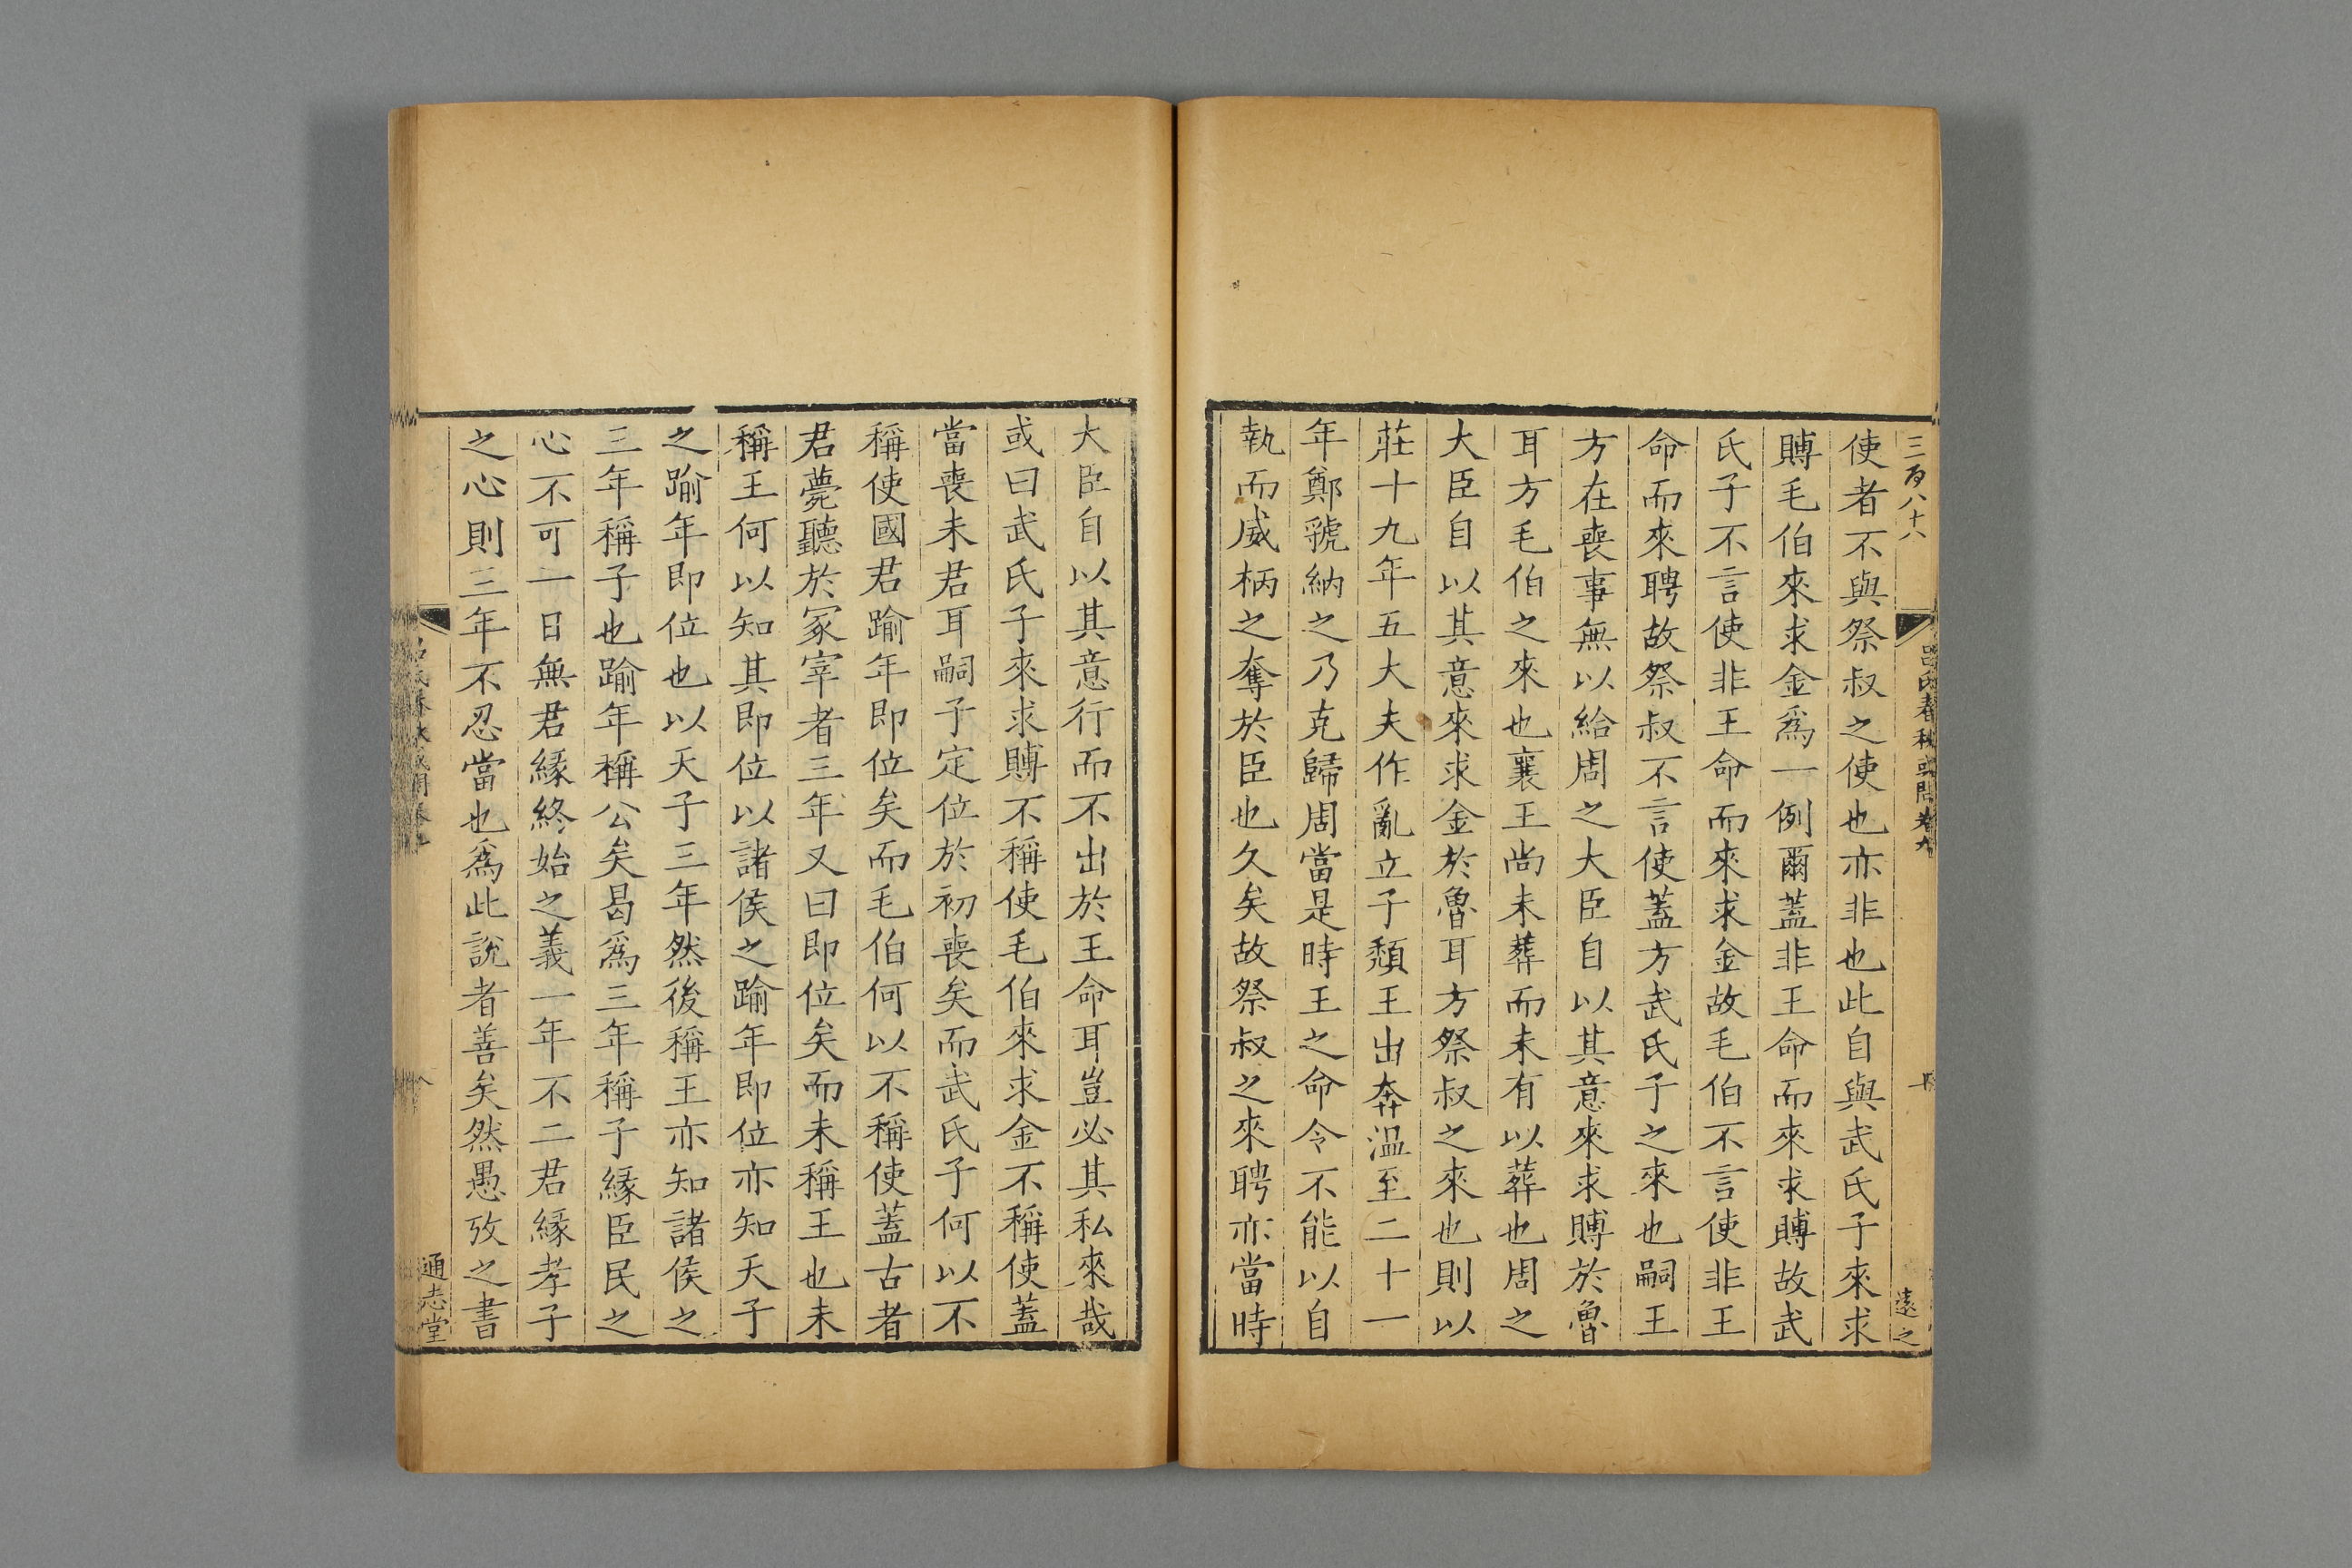 三百八十八
呂氏春秋或問卷九
遠之
使者不與祭叔之使也亦非也此自與武氏子來求
賻毛伯來求金爲一例爾蓋非王命而來求賻故武
氏子不言使非王命而來求金故毛伯不言使非王
命而來聘故祭叔不言使蓋方武氏子之來也嗣王
方在喪事無以給周之大臣自以其意來求賻於魯
耳方毛伯之來也襄王尚未葬而未有以葬也周之
大臣自以其意來求金於魯耳方祭叔之來也則以
莊十九年五大夫作亂立子頹王出奔溫至二十一
年鄭虢納之乃克歸周當是時王之命令不能以自
執而威柄之奪於臣也久矣故祭叔之來聘亦當時
大臣自以其意行而不出於王命耳豈必其私來哉
或曰武氏子來求賻不稱使毛伯來求金不稱使蓋
當喪未君耳嗣子定位於初喪矣而武氏子何以不
稱使國君踰年即位矣而毛伯何以不稱使蓋古者
君薨聽於冢宰者三年又曰即位矣而未稱王也未
稱王何以知其即位以諸侯之踰年即位亦知天子
之踰年即位也以天子三年然後稱王亦知諸侯之
三年稱子也踰年稱公矣曷爲三年稱子緣臣民之
心不可一日無君緣終始之義一年不二君緣孝子
之心則三年不忍當也爲此說者善矣然愚攷之書
通志堂